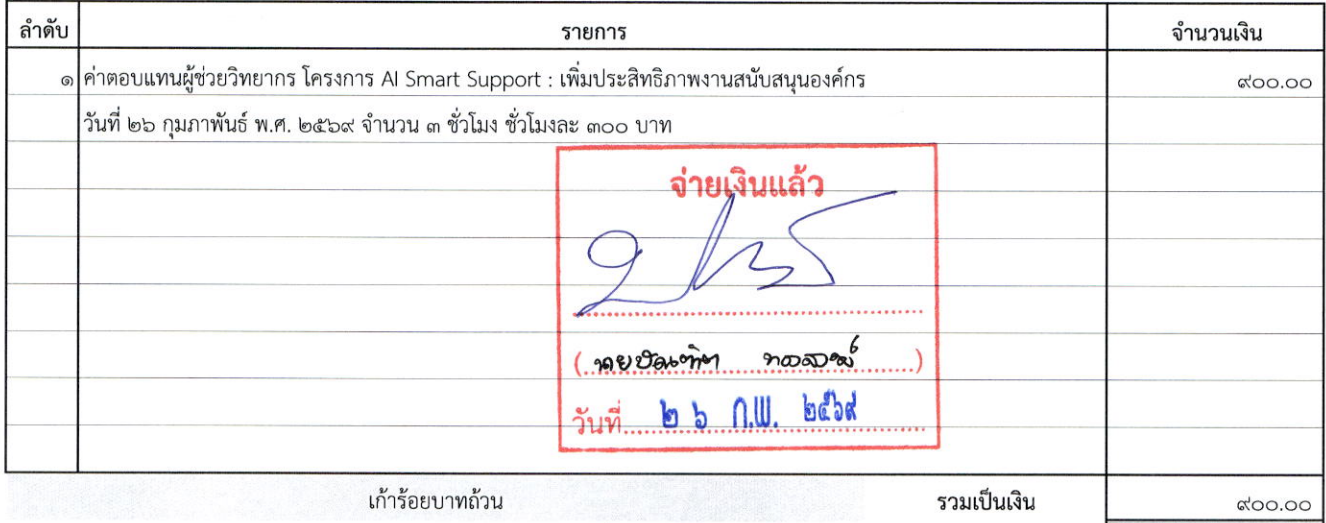 ลำดับ รายการ จำนวนเงิน
๑ ค่าตอบแทนผู้ช่วยวิทยากร โครงการ AI Smart Support : เพิ่มประสิทธิภาพงานสนับสนุนองค์กร ๙๐๐.๐๐
วันที่ ๒๖ กุมภาพันธ์ พ.ศ. ๒๕๖๙ จำนวน ๓ ชั่วโมง ชั่วโมงละ ๓๐๐ บาท
จ่ายเงินแล้ว
(นายบัณฑิต)
วันที่ ๒ ๖ ก.พ. ๒๕๖๙
เก้าร้อยบาทถ้วน รวมเป็นเงิน ๙๐๐.๐๐